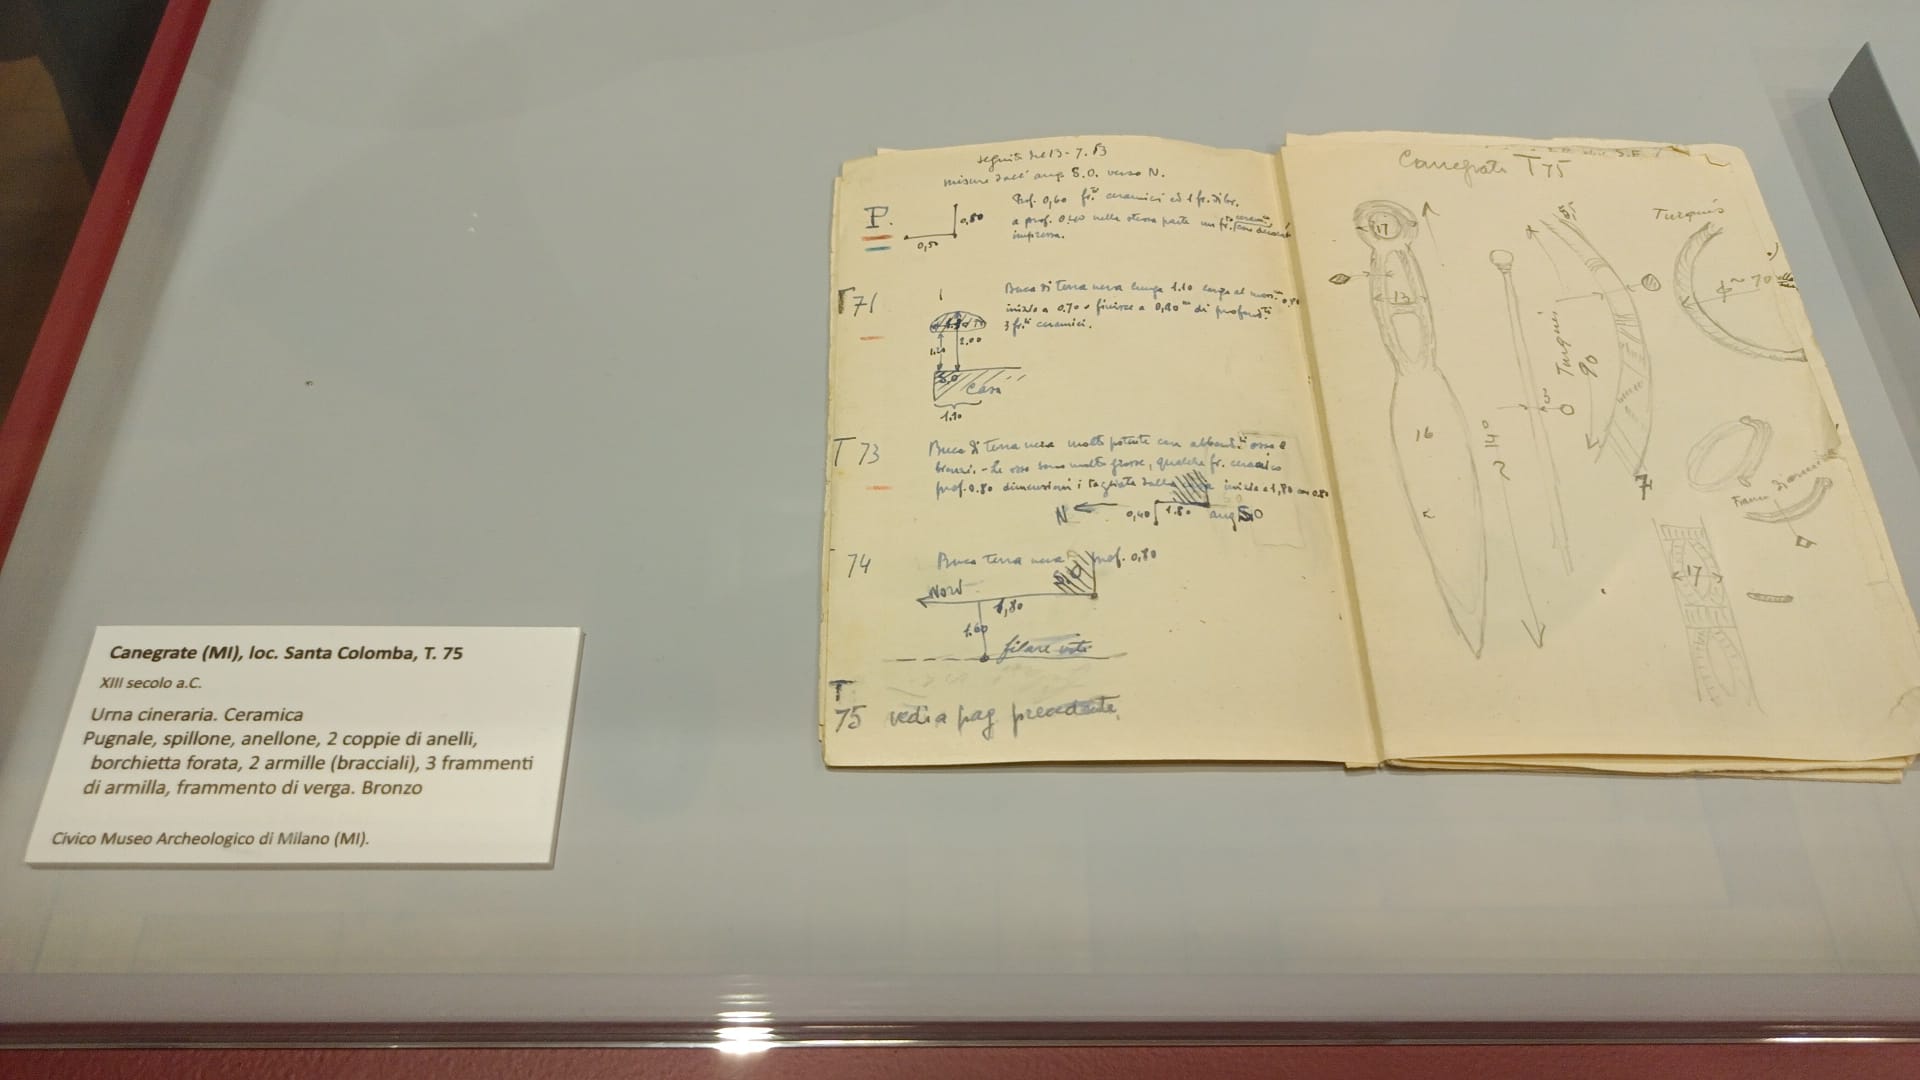 Canegrate (MI), loc. Santa Colomba, T. 75
XIII secolo a.C.
Urna cineraria. Ceramica
Pugnale, spillone, anellone, 2 coppie di anelli,
borchietta forata, 2 armille (bracciali), 3 frammenti
di armilla, frammento di verga. Bronzo
Civico Museo Archeologico di Milano (MI).
seguito del 13-7.
misure dall' ang S.O. verso N.
P.
0,80
0,50
Prof. 0,60 fr.ti ceramici ed 1 fr. di br.
a prof. 0.40 nella stessa parte un fr.
impressa.
T 71
Buca di terra nera lunga 1.10 larga al
inizia a 0.70 e finisce a 0,80 di profond.tà
3 fr.ti ceramici.
2.00
1.20
S.O
Casa
1.10
T 73
Buca di terra nera molto potente con abbond.ti ossa e
bronzi. - Le ossa sono molto grosse, qualche fr. ceramico
prof. 0.80 dimensioni i tagliata dalla inizia a 1,80
N
0,40
1.80
ang SO
74
Buca terra nera prof. 0,80
Nord
1,80
1.60
filare viti
T
75 vedi a pag precedente
Canegrate T 75
17
13
16
~ 140
Turquis
90
7
Turquis
~ 70
17